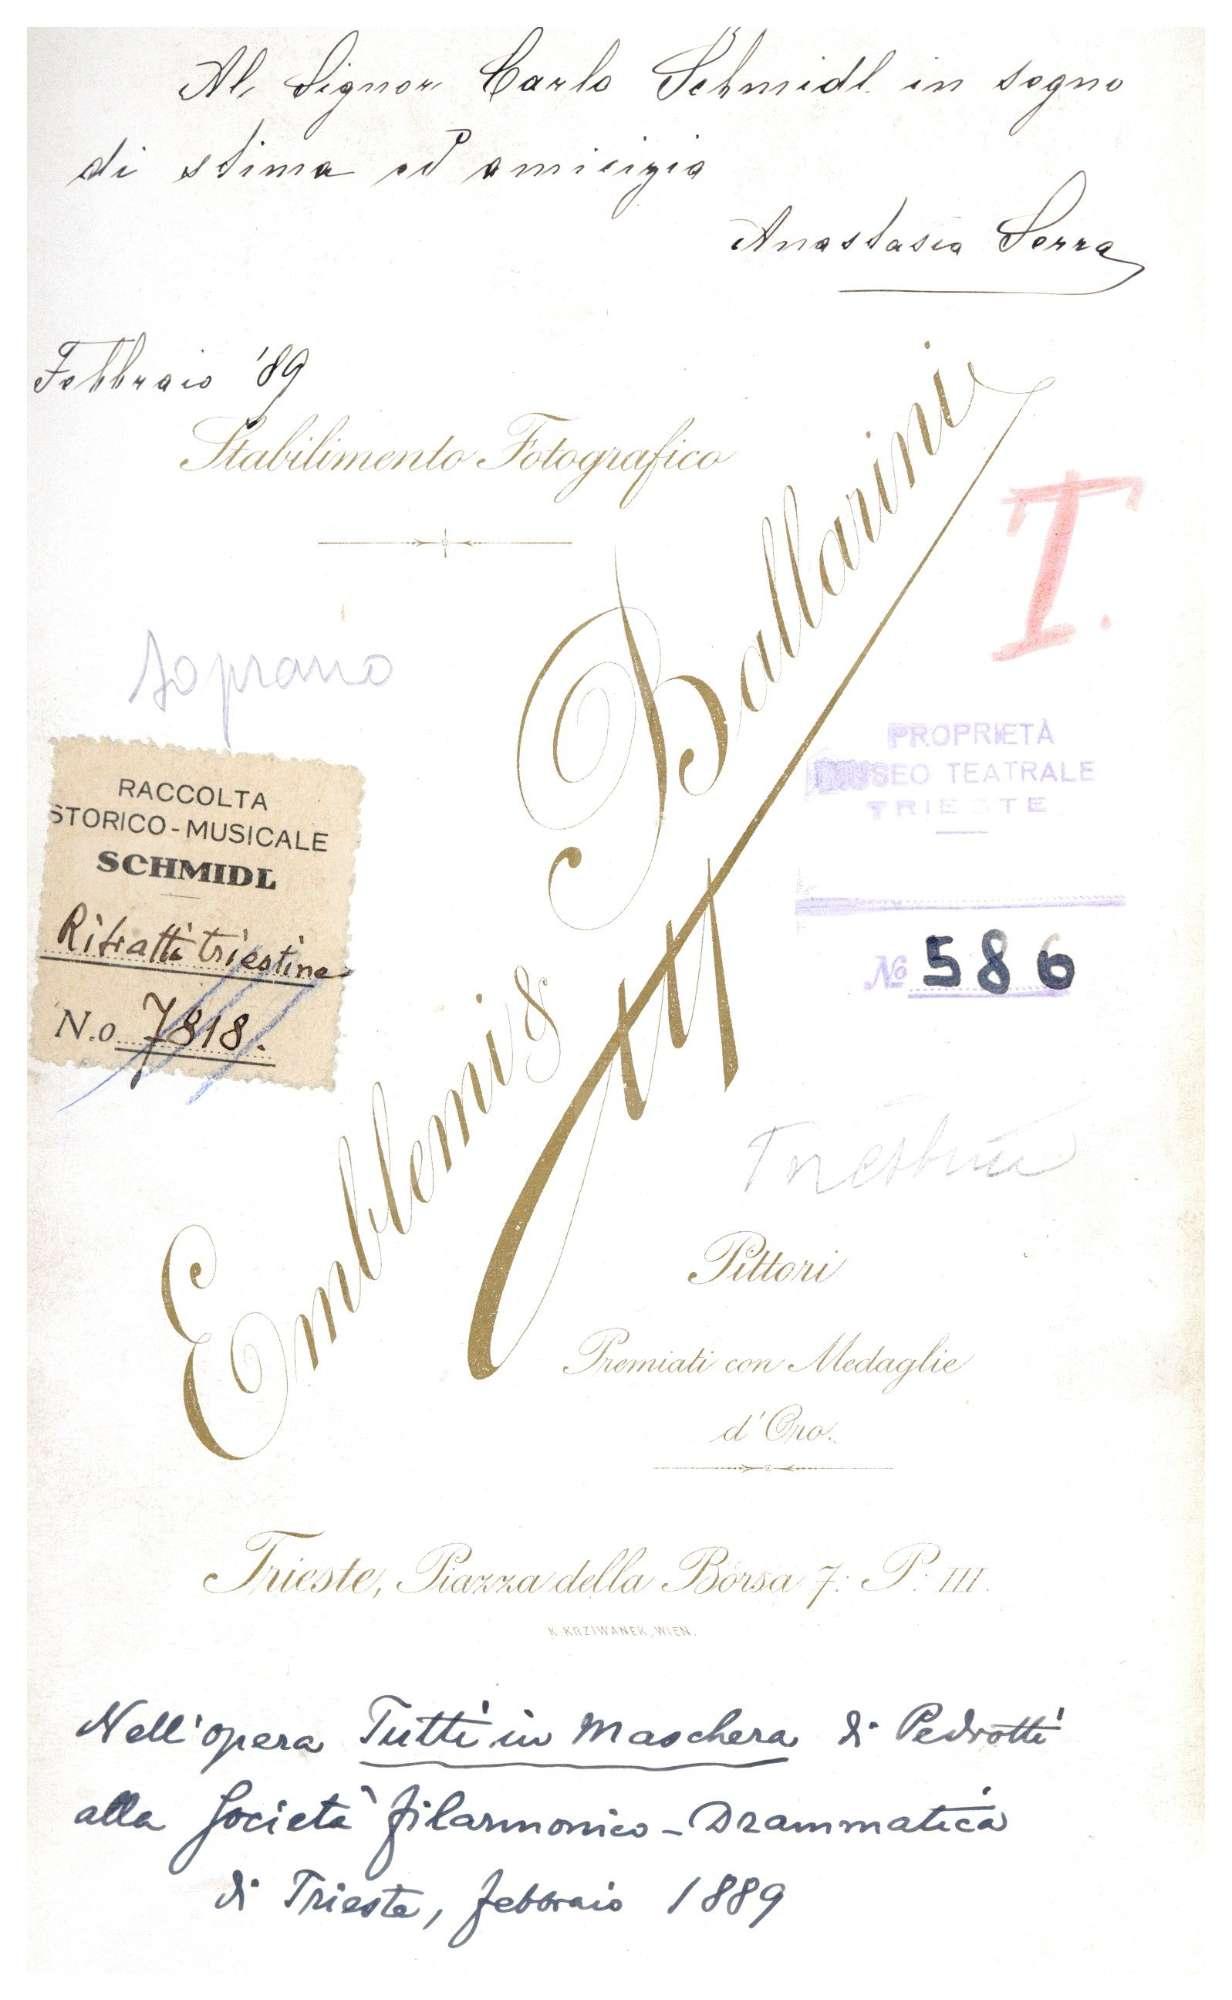 Al Signor Carlo Schmidl in segno
di stima ed amicizia
Anastasia Serra
Febbraio '89
Stabilimento Fotografico
Emblemi & Ballarini
T.
soprano
PROPRIETÀ
MUSEO TEATRALE
TRIESTE
RACCOLTA
STORICO-MUSICALE
SCHMIDL
Ritratti triestine
N.o 7818.
No 586
Triestina
Pittori
Premiati con Medaglie
d'Oro.
Trieste, Piazza della Borsa 7: P: III.
K. KRZIWANEK, WIEN.
Nell'opera Tutti in Maschera di Pedrotti
alla Società filarmonico-Drammatica
di Trieste, febbraio 1889